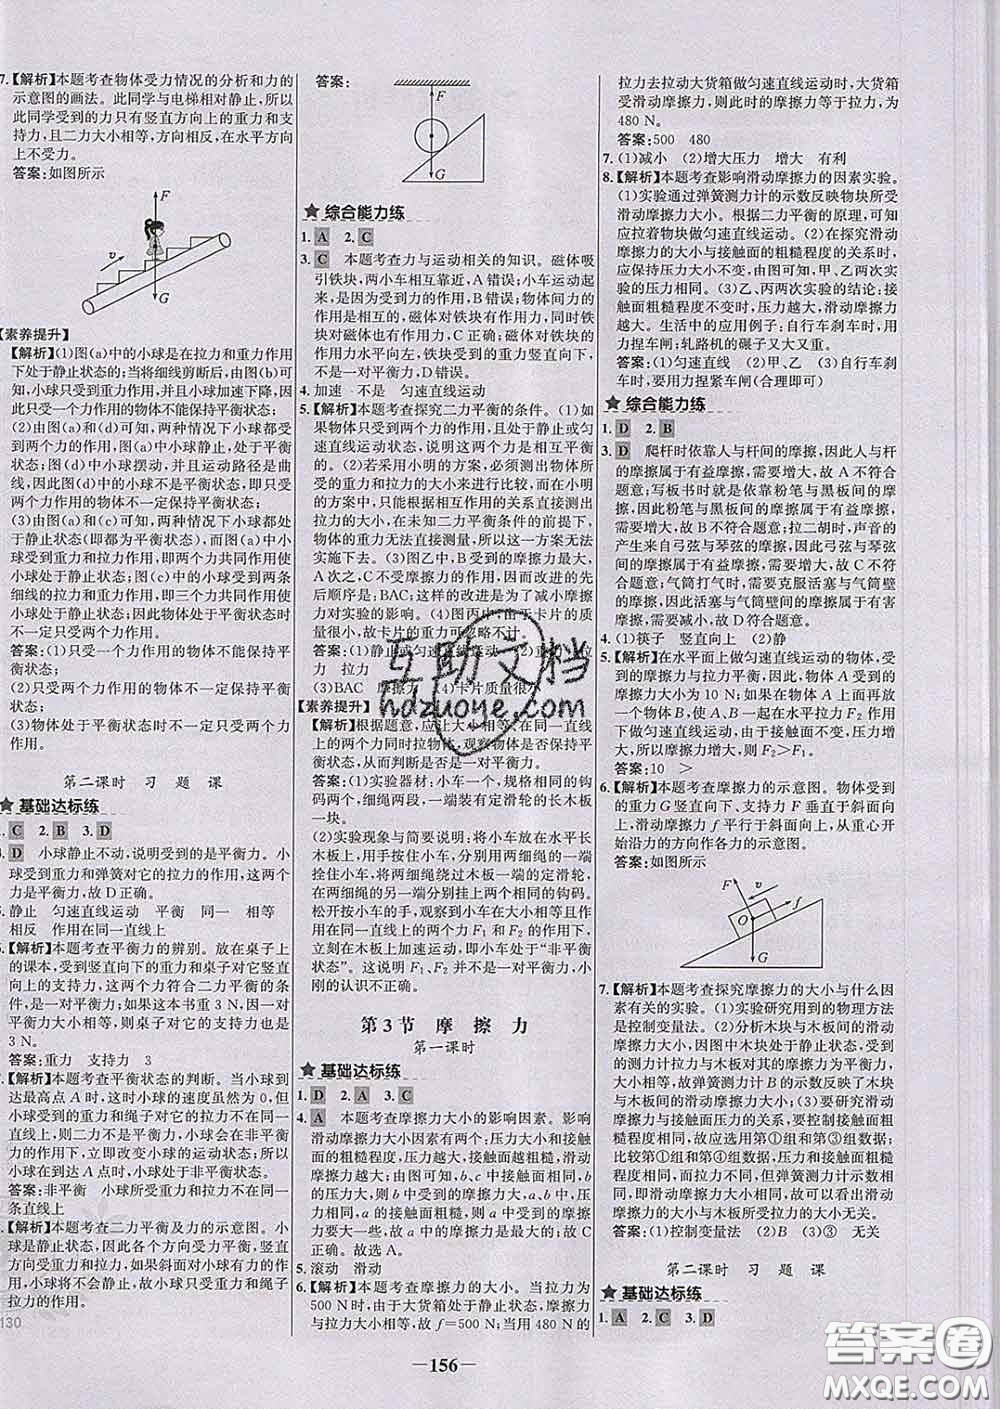 7.【解析】本题考查物体受力情况的分析和力的
示意图的画法。此同学与电梯相对静止,所以
此同学受到的力只有竖直方向上的重力和支
持力,且二力大小相等,方向相反,在水平方向
上不受力。
答案:如图所示
F
v
G
【素养提升】
【解析】(1)图(a)中的小球是在拉力和重力作用
下处于静止状态的;当将细线剪断后,由图(b)可
知,小球只受到重力作用,并且小球加速下降,因
此只受一个力作用的物体不能保持平衡状态;
(2)由图(a)和(d)可知,两种情况下小球都受
到两个力的作用,图(a)中小球静止,处于平衡
状态;图(d)中小球摆动,并且运动路径是曲
线,小球处于非平衡状态,即只受两个力作用的
物体不一定保持平衡状态;
(3)由图(a)和(c)可知,两种情况下小球都处
于静止状态(即都为平衡状态),而图(a)中小球
受到重力和拉力作用,即两个力共同作用使
小球处于静止状态;图(c)中小球受到两条
细线的拉力和重力作用,即三个力共同作用使
小球处于静止状态;因此物体处于平衡状态时
不一定只受两个力作用。
答案:(1)只受一个力作用的物体不能保持平
衡状态;
(2)只受两个力作用的物体不一定保持平衡状
态;
(3)物体处于平衡状态时不一定只受两个力
作用。
第二课时 习题课
★基础达标练
C 2. B 3. D
D 小球静止不动,说明受到的是平衡力。小
球受到重力和弹簧对它的拉力的作用,这两个
力是平衡力,故D正确。
静止 匀速直线运动 平衡 同一 相等
相反 作用在同一直线上
【解析】本题考查平衡力的辨别。放在桌子上
的课本,受到竖直向下的重力和桌子对它竖直
向上的支持力,这两个力符合二力平衡的条
件,是一对平衡力;如果这本书重 3 N,因一对
平衡力大小相等,则桌子对它的支持力大小也为
3 N。
答案:重力 支持力 3
【解析】本题考查平衡状态的判断。当小球达
到最高点 A 时,这时小球的速度虽然为 0,但
小球受到的重力和绳子对它的拉力不在同一
直线上,则二力不是平衡力,小球会在非平衡
力的作用下,立即改变小球的运动状态,所以
小球在到达 A 点时,小球处于非平衡状态。
答案:非平衡 小球所受重力和拉力不在同一
条直线上
【解析】本题考查二力平衡及力的示意图。小
球是静止状态,因此各个方向受力平衡,竖直
方向受重力和拉力。如斜面对小球有力的作
用,小球将不会静止,故小球只受重力和绳子
拉力的作用。
130
答案:
F
G
★综合能力练
1. A 2. C
3. C 本题考查力与运动相关的知识。磁体吸
引铁块时,两小车相互靠近,A 错误;小车运动起
来,是受到力的作用,B 错误;物体间力的
作用是相互的,磁体对铁块有作用力,同时铁
块对磁体也有作用力,C 正确;磁体对铁块的
作用力水平向左,铁块受到的重力竖直向下,
不是一对平衡力,D 错误。
4. 加速 不是 匀速直线运动
5.【解析】本题考查探究二力平衡的条件。(1)如
果物体只受到两个力的作用,且处于静止或匀
速直线运动状态,说明这两个力是相互平衡
的。(2)若采用小明的方案,必须测出物体所
受的重力和拉力的大小来进行比较,而在小明
的方案中,根据相互作用的关系直接测出
拉力的大小,在未知二力平衡条件的前提下,
物体的重力无法直接测量,所以这一方案无法
实施下去。(3)图乙中,B 受到的摩擦力最大,
A 次之,C 不受摩擦力的作用,因而改进的先
后顺序是:BAC;这样的改进是为了减小摩擦
力对实验的影响。(4)图丙中,由于卡片的重力
很小,故卡片的重力可忽略不计。
答案:(1)静止或匀速直线运动 (2)重力
拉力
(3)BAC 摩擦力 (4)卡片质量很小
【素养提升】
【解析】根据题意,应让大小相等、在同一直线上
的两个力同时拉物体,观察物体是否保持平衡
状态,从而判断是否是一对平衡力。
答案:(1)实验器材:小车一个,规格相同的钩
码两个,细绳两段,一端装有定滑轮的长木板
一块。
(2)实验现象与简要说明:将小车放在水平长
木板上,先用手按住小车,用两细绳的一端分
别拴住小车的两端,再跨过木板一端的定滑轮,
在两细绳的另一端分别挂上两个相同的钩码。
松开按小车的手,观察到小车在大小相等、方
向相同并且在同一直线上的两个力的作用下,
立刻在木板上加速运动,即小车处于“非平衡
状态”。说明 F₁ 与 F₂ 不是一对平衡力,即小
刚的认识不正确。
第3节 摩擦力
第一课时
★基础达标练
1. D 2. A 3. C
4. A 本题考查摩擦力大小的影响因素。影响
滑动摩擦力大小因素有两个:压力大小和接触
面的粗糙程度,压力越大、接触面越粗糙,滑动
摩擦力越大;由图可知,b、c 中接触面相同,b
的压力更大,则 b 中受到的摩擦力大;a、b 压力
相同,a 的接触面粗糙,则 a 中受到的滑动摩擦
力要大一些,故 a 中的摩擦力是最大的;故 C
正确。故选 A。
5. 滚动 滑动
6.【解析】本题考查摩擦力的大小。当拉力为
500 N时,由于大货箱处于静止状态,则摩擦力
与拉力平衡,故 f=500 N;当用 480 N 的
拉力去拉动大货箱做匀速直线运动时,大货箱
受滑动摩擦力,则此时的摩擦力等于拉力,为
480 N。
答案:500 480
7. (1)减小 (2)增大压力 增大 有利
8.【解析】本题考查影响滑动摩擦力的因素实验。
(1)实验通过弹簧测力计的示数反映物块所受
滑动摩擦力大小。根据二力平衡的原理,可知
应拉着物块做匀速直线运动。(2)在探究滑动
摩擦力的大小与接触面的粗糙程度的关系时,
应保持压力大小不变,由图可知,甲、乙两次实
验符合。(3)乙、丙两次实验可得出的结论:接
触面粗糙程度不变时,压力越大,滑动摩擦力
越大。生活中的应用例子:自行车刹车时,要用
力捏车闸;轧路机的碾子又大又重。
答案:(1)匀速直线 (2)甲、乙 (3)自行车刹
车时,要用力捏紧车闸(合理即可)
★综合能力练
1. D 2. B
3. D 爬杆时依靠人与杆间的摩擦,因此人与杆
的摩擦属于有益摩擦,需要增大,故 A 不符合
题意;写板书时就是依靠粉笔与黑板间的摩擦,
因此粉笔与黑板间的摩擦属于有益摩擦,
需要增大,故 B 不符合题意;拉二胡时,声音的
产生来自弓弦与琴弦的摩擦,因此弓弦与琴弦
间的摩擦属于有益摩擦,需要增大,故 C 不符
合题意;气筒打气时,需要克服活塞与气筒壁
的摩擦,故活塞与气筒壁间的摩擦属于有害
摩擦,需要减小,故 D 符合题意。
4. (1)筷子 竖直向上 (2)静
5.【解析】在水平面上做匀速直线运动的物体,受
到的拉力与摩擦力平衡,所以物体受到的摩擦
力大小为 10 N;如果在物体 A 上面再放一
个物体 B,使 A、B 一起在水平拉力 F₂ 作用下
做匀速直线运动,由于压力增大,所以摩擦力
增大,所以拉力增大,则 F₂>F₁。
答案:10 >
6.【解析】本题考查摩擦力的示意图。物体受到
的重力 G 竖直向下、支持力 F 垂直于斜面向
上,滑动摩擦力 f 平行于斜面向上,从重心开
始沿力的方向作各力的示意图。
答案:如图所示
F
v
f
O
G
7.【解析】本题考查探究摩擦力的大小与什么因
素有关的实验。(1)实验研究用到的物理方法
是控制变量法。(2)分析木块与木板间的滑动
摩擦力时,木块在木板上匀速直线运动,弹簧
测力计拉力与木板对其的摩擦力为平衡力,大
小相同,故弹簧测力计的示数反映了木块与木
板间的摩擦力大小;(3)要研究滑动摩擦力
的大小与接触面受到压力的关系,要控制接触面粗
糙程度相同,故应选用第①组和第③组数据;
比较第①组和第④组数据,压力大小和接触面
粗糙程度相同,而弹簧测力计示数相同,
所以木块受到的滑动摩擦力大小相同,故滑动摩
擦力的大小与木板所受拉力的大小无关。
答案:(1)控制变量法 (2)B (3)③ 无关
第二课时 习题课
★基础达标练
1. A 2. C 3. D
—156—
互助文档
hdzuoye.com
答案圈
MXQE.COM